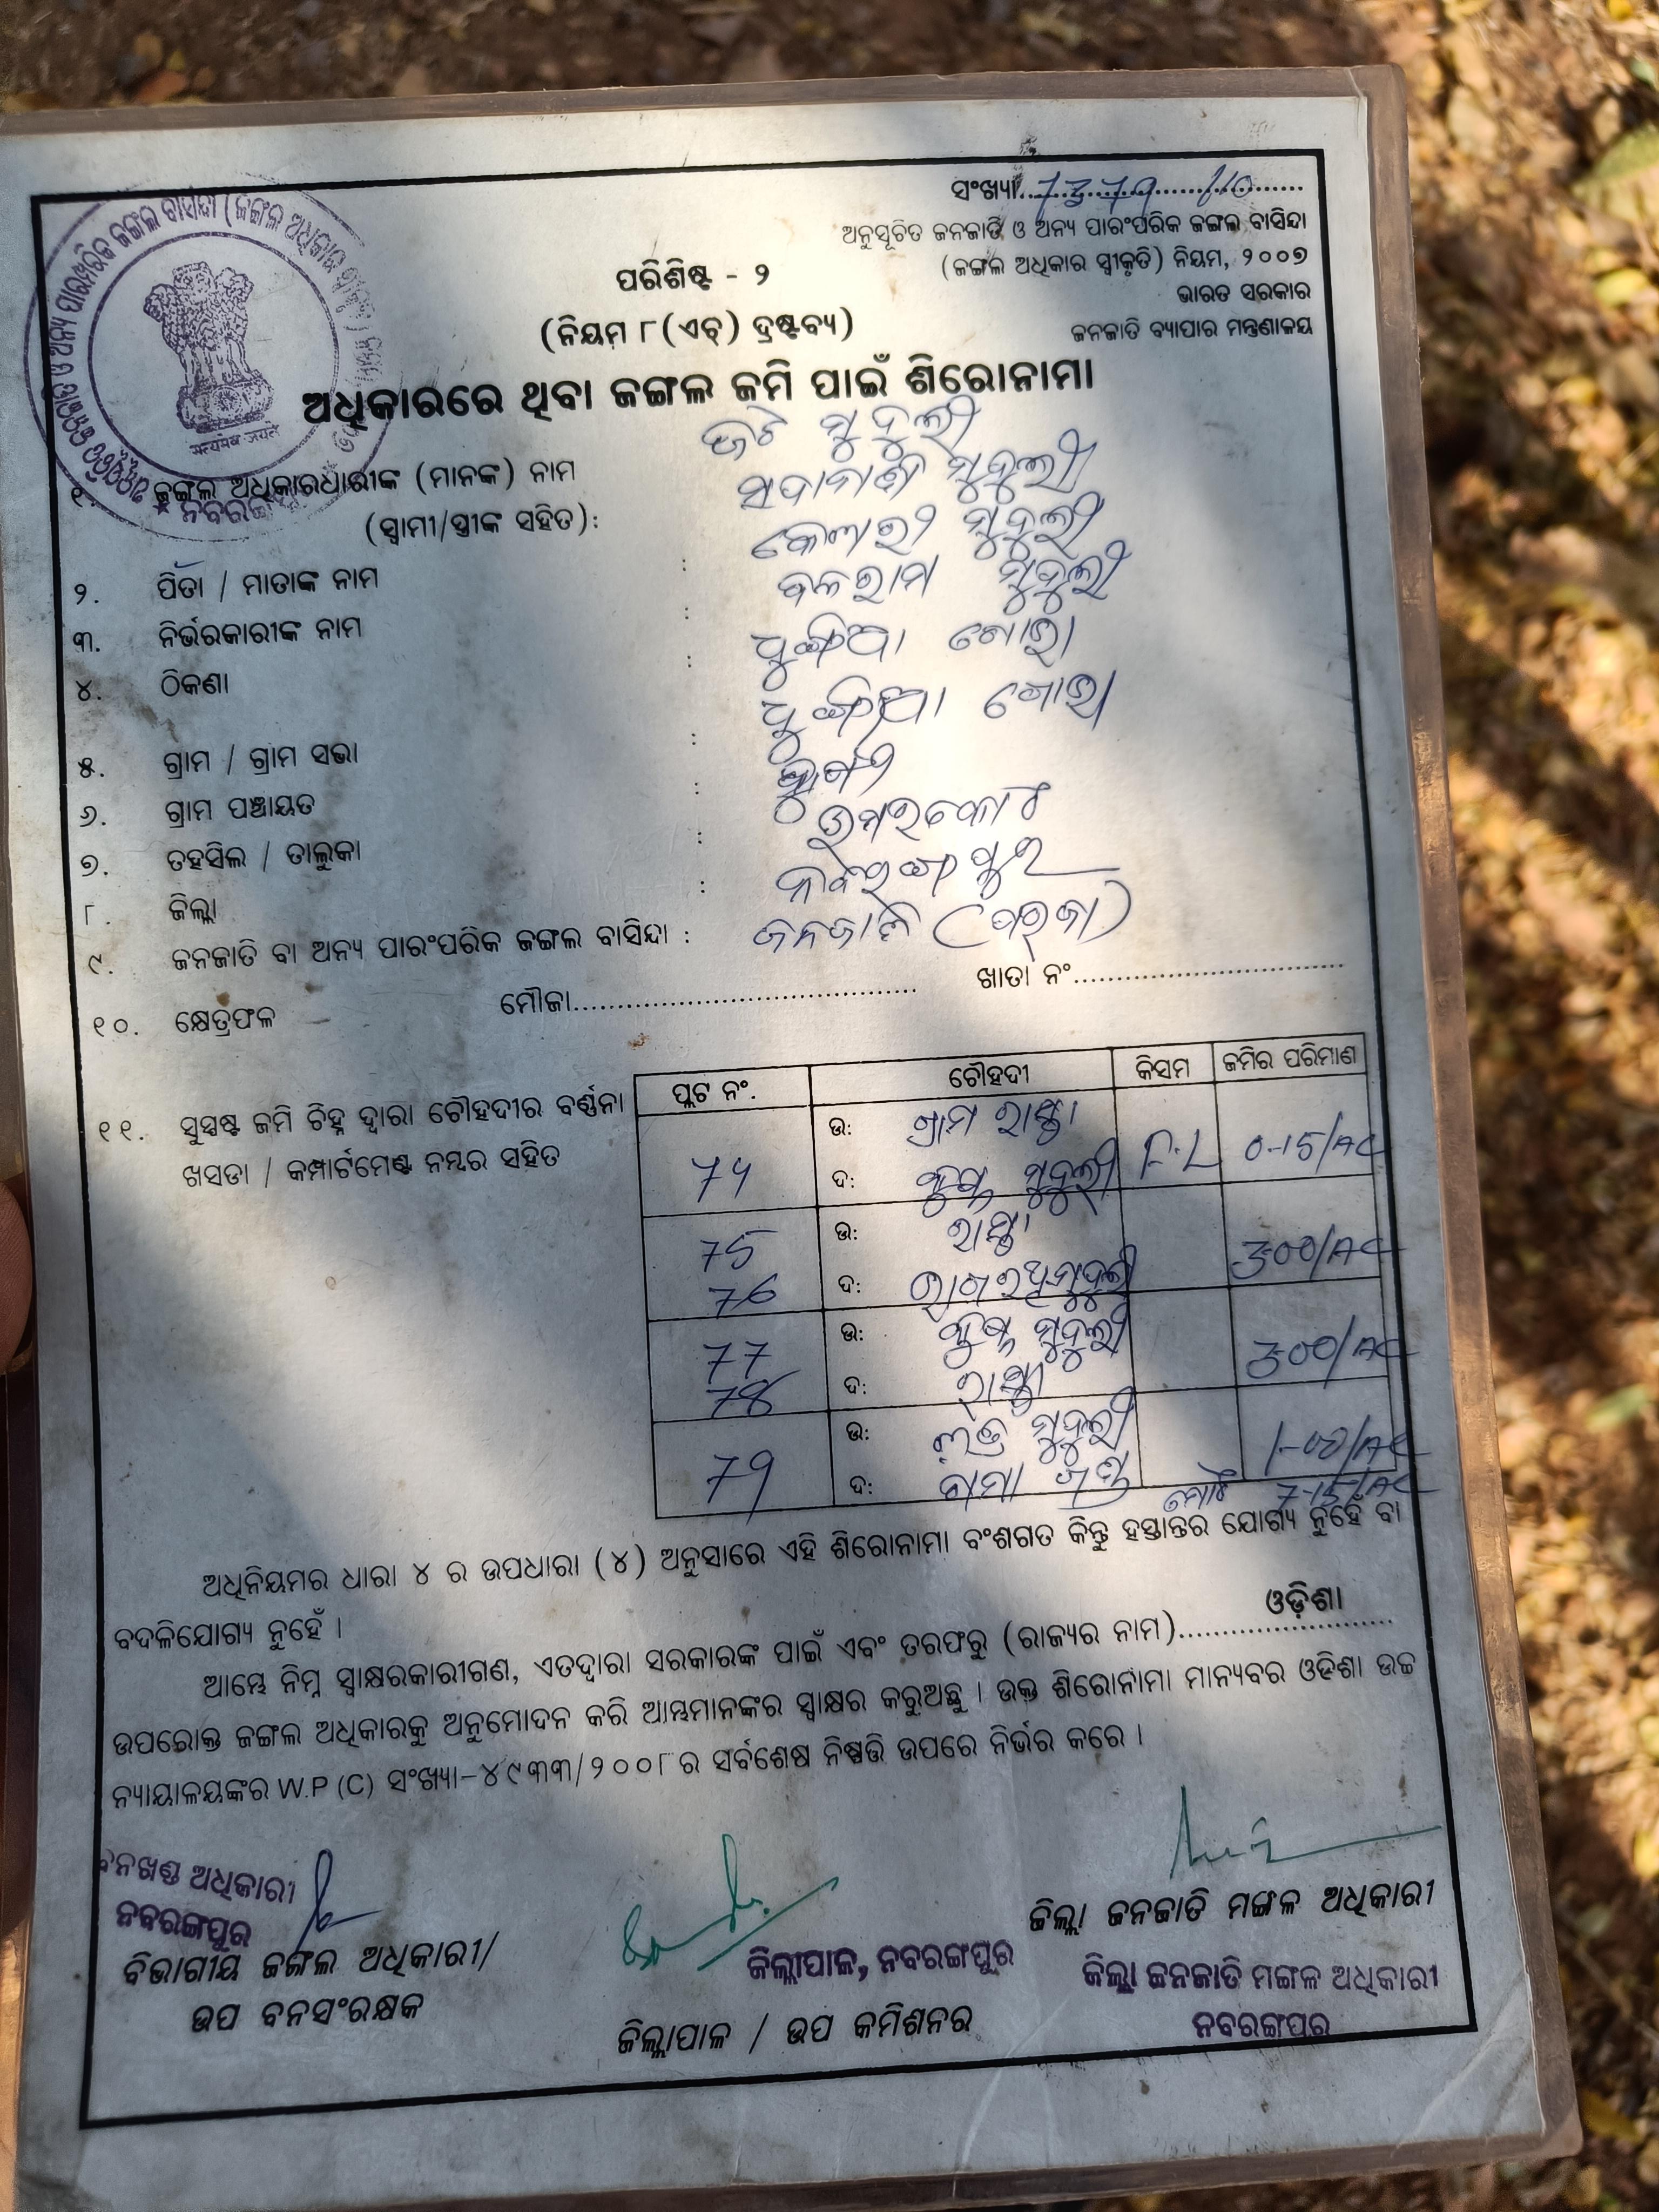 ସଂଖ୍ୟା 7379/10
ଅନୁସୂଚିତ ଜନଜାତି ଓ ଅନ୍ୟ ପାରଂପରିକ ଜଙ୍ଗଲ ବାସିନ୍ଦା
(ଜଙ୍ଗଲ ଅଧିକାର ସ୍ୱୀକୃତି) ନିୟମ, ୨୦୦୭
ଭାରତ ସରକାର
ଜନଜାତି ବ୍ୟାପାର ମନ୍ତ୍ରଣାଳୟ
ପରିଶିଷ୍ଟ - ୨
(ନିୟମ ୮(ଏଚ୍) ଦ୍ରଷ୍ଟବ୍ୟ)
ଅଧିକାରରେ ଥିବା ଜଙ୍ଗଲ ଜମି ପାଇଁ ଶିରୋନାମା
सत्यमेव जयते
୧. ଜଙ୍ଗଲ ଅଧିକାରଧାରୀଙ୍କ (ମାନଙ୍କ) ନାମ ମୁଦୁଲୀ
(ସ୍ୱାମୀ/ସ୍ତ୍ରୀଙ୍କ ସହିତ): ମୁଦୁଲୀ
୨. ପିତା / ମାତାଙ୍କ ନାମ : ମୁଦୁଲୀ
୩. ନିର୍ଭରକାରୀଙ୍କ ନାମ : ବଳରାମ ମୁଦୁଲୀ
୪. ଠିକଣା :
୫. ଗ୍ରାମ / ଗ୍ରାମ ସଭା :
୬. ଗ୍ରାମ ପଞ୍ଚାୟତ :
୭. ତହସିଲ / ତାଲୁକା : ଉମରକୋଟ
୮. ଜିଲ୍ଲା : ନବରଙ୍ଗପୁର
୯. ଜନଜାତି ବା ଅନ୍ୟ ପାରଂପରିକ ଜଙ୍ଗଲ ବାସିନ୍ଦା : ଜନଜାତି
୧୦. କ୍ଷେତ୍ରଫଳ ମୌଜା........ ଖାତା ନଂ........
୧୧. ସୁସ୍ପଷ୍ଟ ଜମି ଚିହ୍ନ ଦ୍ୱାରା ଚୌହଦୀର ବର୍ଣ୍ଣନା
ଖସଡା / କମ୍ପାର୍ଟମେଣ୍ଟ ନମ୍ବର ସହିତ
ପ୍ଲଟ ନଂ. ଚୌହଦୀ କିସମ ଜମିର ପରିମାଣ
74 ଉ: ଗ୍ରାମ ରାସ୍ତା F.L 0-15/AC
ଦ: ମୁଦୁଲୀ
75 ଉ: ରାସ୍ତା 3-00/AC
76 ଦ: ମୁଦୁଲୀ
77 ଉ: ମୁଦୁଲୀ 3-00/AC
78 ଦ: ରାସ୍ତା
79 ଉ: ମୁଦୁଲୀ 1-00/AC
ଦ:
ମୋଟ 7-15/AC
ଅଧିନିୟମର ଧାରା ୪ ର ଉପଧାରା (୪) ଅନୁସାରେ ଏହି ଶିରୋନାମା ବଂଶଗତ କିନ୍ତୁ ହସ୍ତାନ୍ତର ଯୋଗ୍ୟ ନୁହେଁ ବା
ବଦଳିଯୋଗ୍ୟ ନୁହେଁ ।
ଆମ୍ଭେ ନିମ୍ନ ସ୍ୱାକ୍ଷରକାରୀଗଣ, ଏତଦ୍ୱାରା ସରକାରଙ୍କ ପାଇଁ ଏବଂ ତରଫରୁ (ରାଜ୍ୟର ନାମ) ଓଡ଼ିଶା
ଉପରୋକ୍ତ ଜଙ୍ଗଲ ଅଧିକାରକୁ ଅନୁମୋଦନ କରି ଆମ୍ଭମାନଙ୍କର ସ୍ୱାକ୍ଷର କରୁଅଛୁ । ଉକ୍ତ ଶିରୋନାମା ମାନ୍ୟବର ଓଡିଶା ଉଚ୍ଚ
ନ୍ୟାୟାଳୟଙ୍କର W.P (C) ସଂଖ୍ୟା-୪୯୩୩/୨୦୦୮ ର ସର୍ବଶେଷ ନିଷ୍ପତ୍ତି ଉପରେ ନିର୍ଭର କରେ ।
ବନଖଣ୍ଡ ଅଧିକାରୀ
ନବରଙ୍ଗପୁର
ବିଭାଗୀୟ ଜଙ୍ଗଲ ଅଧିକାରୀ/
ଉପ ବନସଂରକ୍ଷକ
ଜିଲ୍ଲାପାଳ, ନବରଙ୍ଗପୁର
ଜିଲ୍ଲାପାଳ / ଉପ କମିଶନର
ଜିଲ୍ଲା ଜନଜାତି ମଙ୍ଗଳ ଅଧିକାରୀ
ଜିଲ୍ଲା ଜନଜାତି ମଙ୍ଗଳ ଅଧିକାରୀ
ନବରଙ୍ଗପୁର